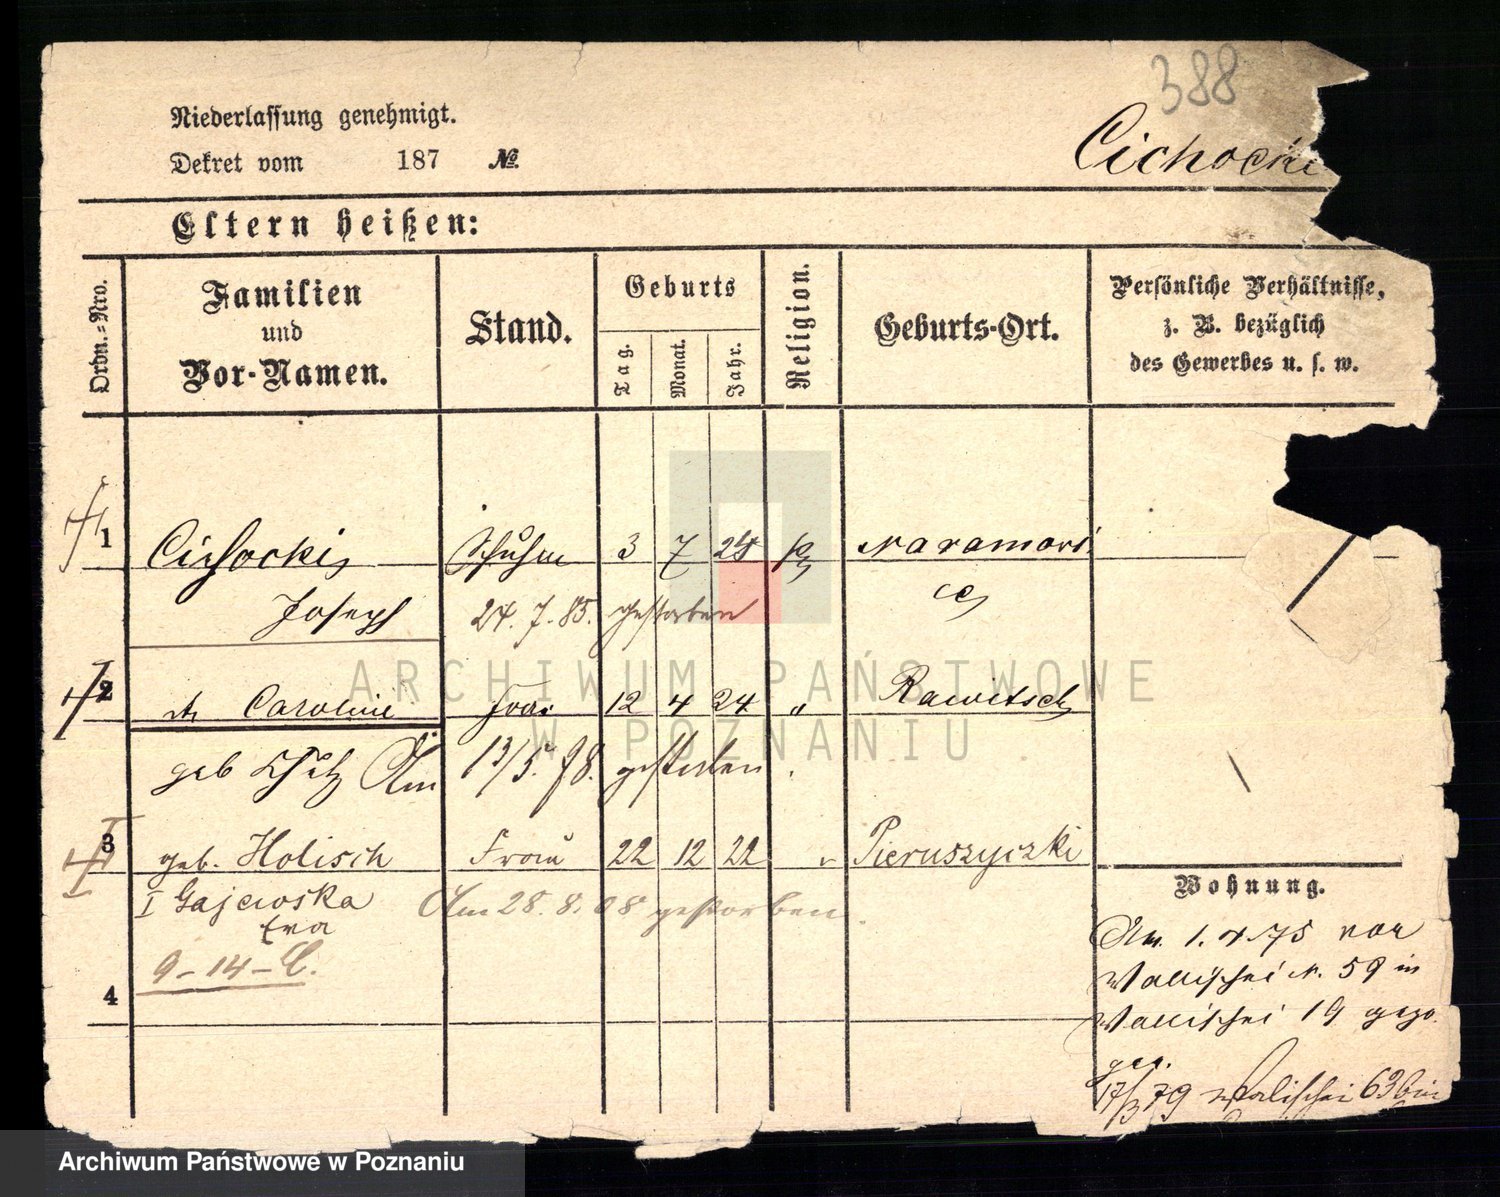 388
Niederlassung genehmigt.
Dekret vom 187 №
Cichocki
Eltern heißen:
Ordn.-Nro.
Familien
und
Vor-Namen.
Stand.
Geburts
Tag.
Monat.
Jahr.
Religion.
Geburts-Ort.
Persönliche Verhältnisse,
z. B. bezüglich
des Gewerbes u. s. w.
1 Cichocki, Schuhm 3 7 24
Joseph 24. 7. 85. gestorben
2 Caroline Frau 12 4 24 " Rawitsch
geb Am 13/5. 98. gestorben.
3 geb. Holisch Frau 22 12 22 " Pieruszyczki
I Gajewska Am 28. 8. 08 gestorben.
Eva
9-14-C.
4
Wohnung.
Am. 1. 4. 75 von
Wallischei N. 59 in
Wallischei 19 gezo
gen.
17/3 79 Wallischei 63
ARCHIWUM PAŃSTWOWE
W POZNANIU
Archiwum Państwowe w Poznaniu